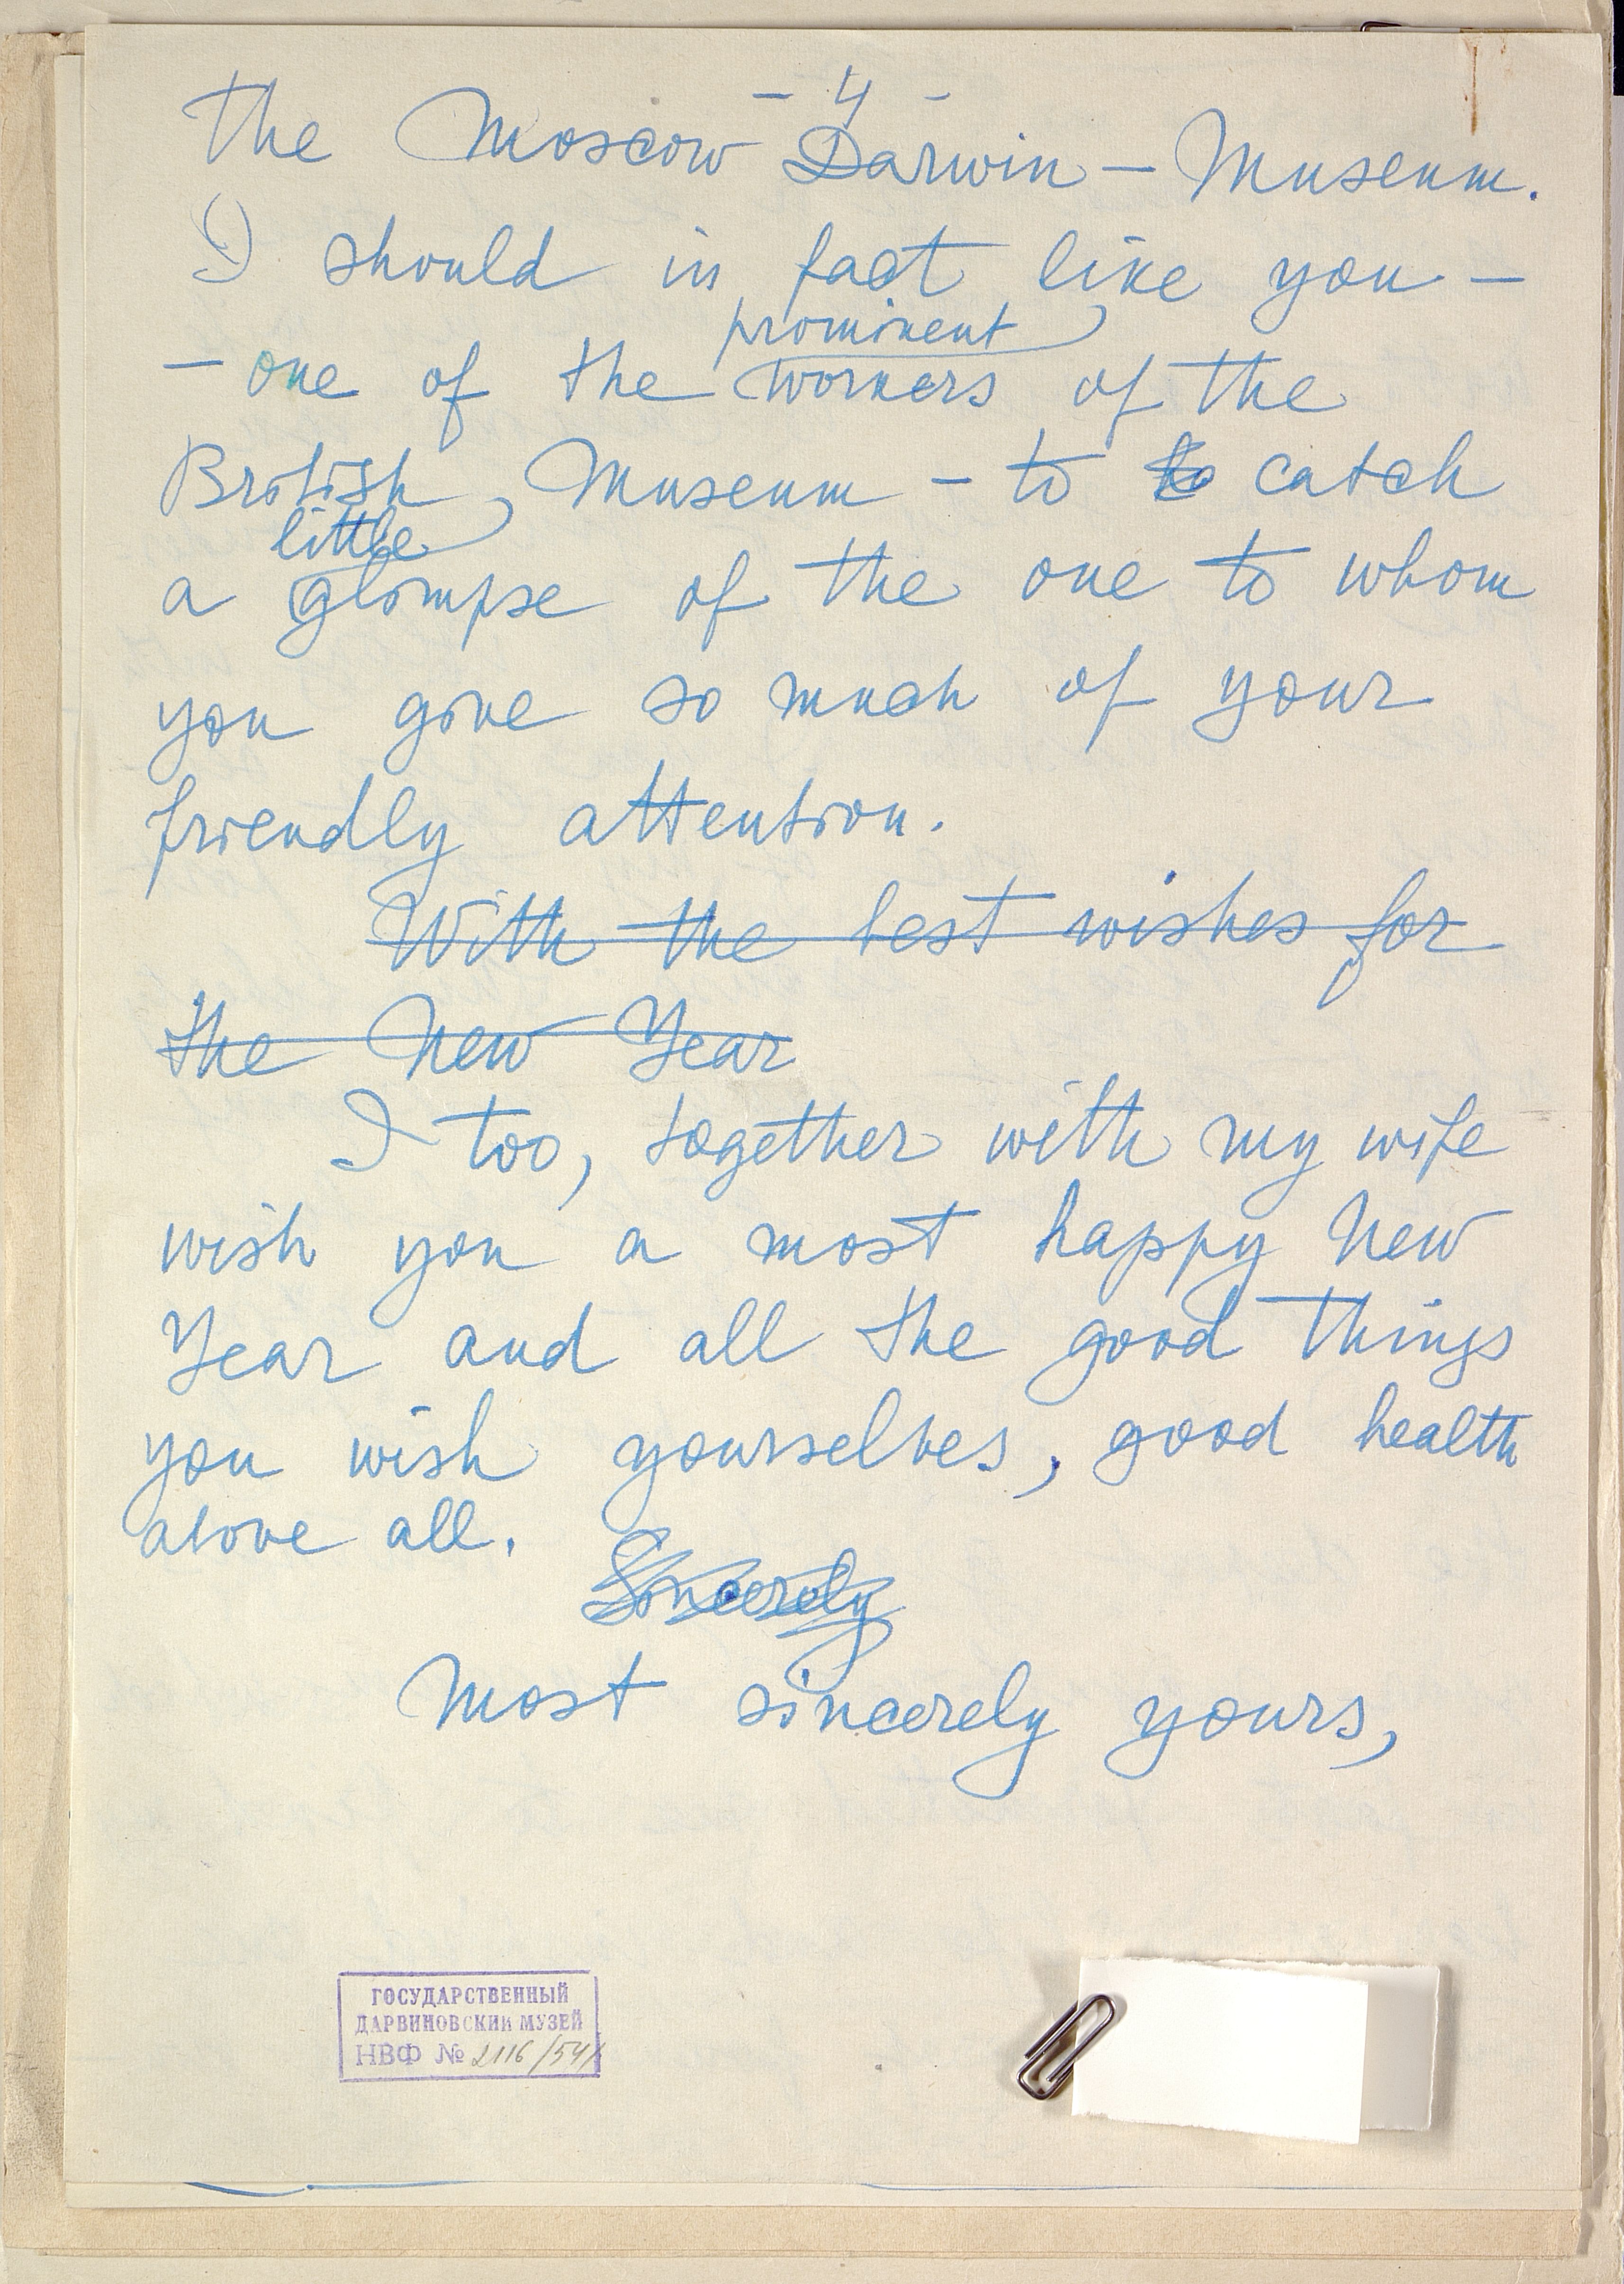 - 4 -
the Moscow Darwin - Museum.
I should in fact like you -
prominent
- one of the workers of the
British Museum - to to catch
little
a glimpse of the one to whom
you give so much of your
friendly attention.
With the best wishes for
the New Year
I too, together with my wife
wish you a most happy New
Year and all the good things
you wish yourselves, good health
above all.
Sincerely
Most sincerely yours,
ГОСУДАРСТВЕННЫЙ
ДАРВИНОВСКИЙ МУЗЕЙ
НВФ № 2116/541